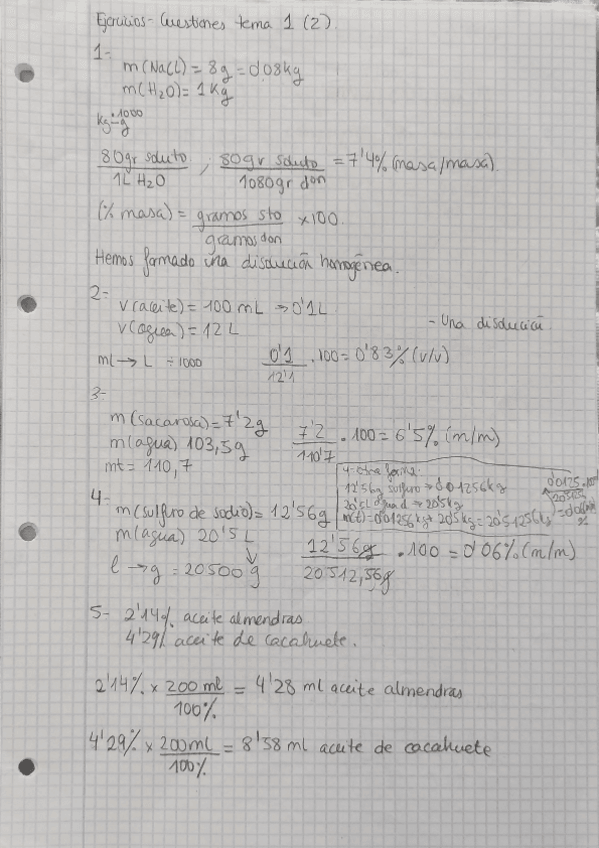 Ejercicios - Cuestiones tema 1 (2).
1-
m(NaCl) = 8g = 0,08kg
m(H₂O) = 1Kg
kg →·1000 g
80gr soluto / 1L H₂O ; 80gr soluto / 1080gr don = 7'4% (masa/masa)
(% masa) = gramos sto / gramos don ×100.
Hemos formado una disolución homogénea.
2-
v(aceite) = 100 mL → 0'1L
v(agua) = 12 L
- Una disolución
ml → L ÷1000
0'1 / 12'1 · 100 = 0'83% (v/v)
3-
m(sacarosa) = 7'2g
m(agua) 103,5g
mt = 110,7
7'2 / 110'7 · 100 = 6'5% (m/m)
4- otra forma:
12'56g sulfuro → 0'01256kg
20'5L agua → 20'5kg
m(t) = 0'01256kg + 20'5kg = 20'51256kg
4-
m(sulfuro de sodio) = 12'56g
m(agua) 20'5L
l → g = 20500 g
12'56g / 20512,56g · 100 = 0'06% (m/m)
5- 2'14% aceite almendras
4'29% aceite de cacahuete.
2'14% × 200 ml / 100% = 4'28 ml aceite almendras
4'29% × 200ml / 100% = 8'58 ml aceite de cacahuete